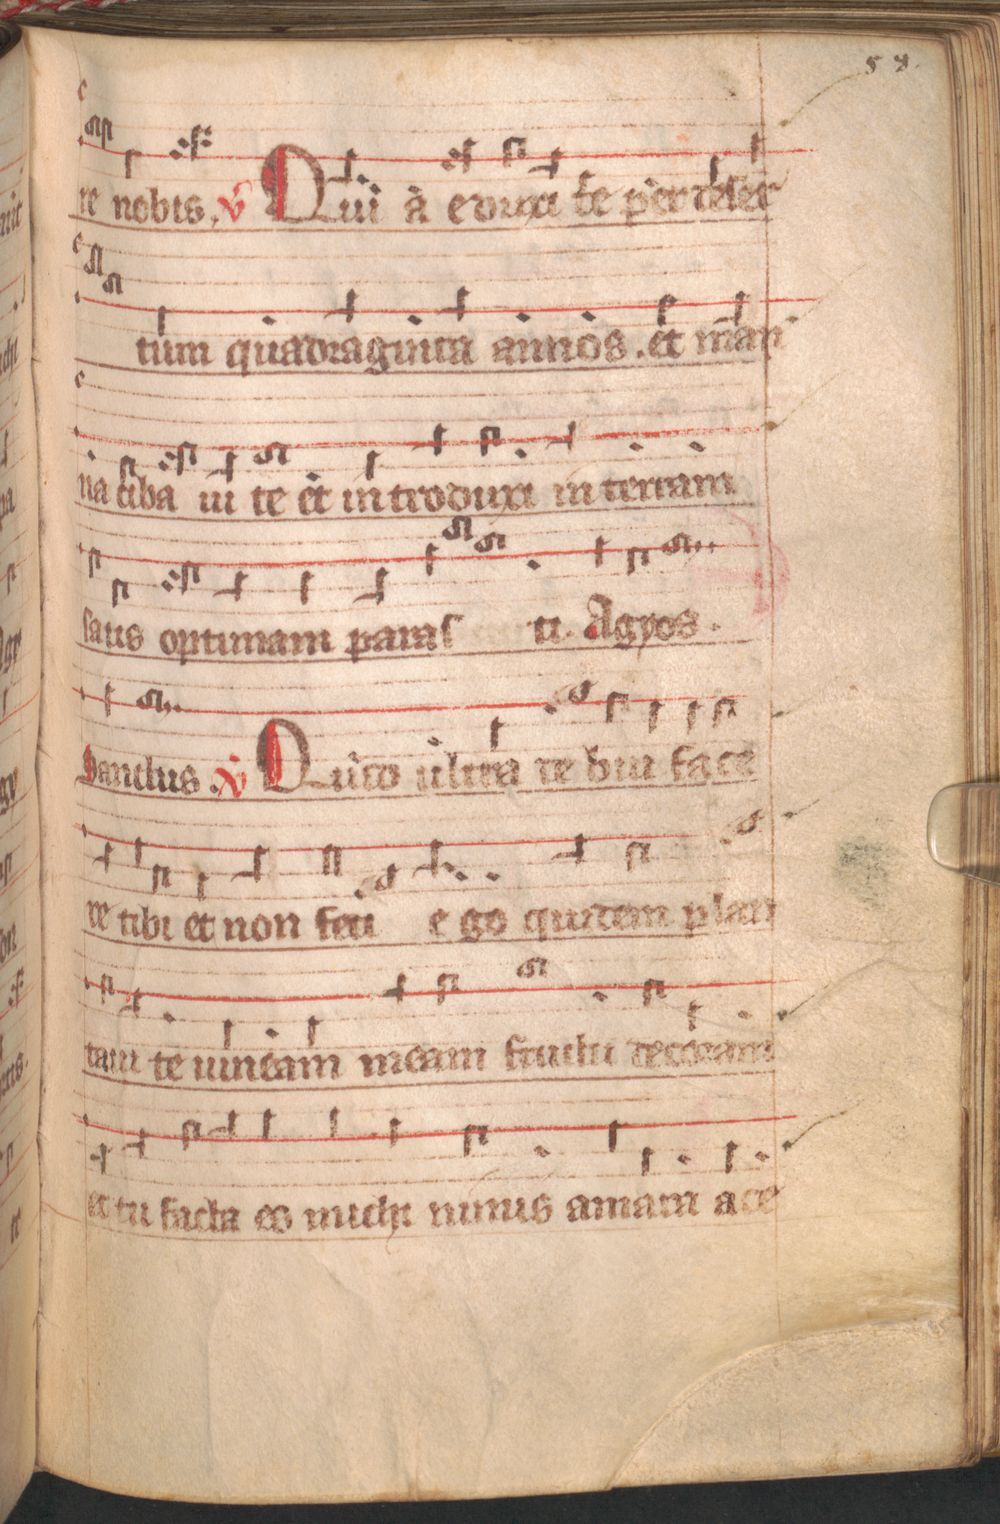 re nobis. v Qui a eduxi te per deser
tum quadraginta annos. et man
na ciba ui te et introduxi in terram
satis optimam paras ti. Agyos.
Sanctus. v Quid ultra debui face
re tibi et non feci ego quidem plan
taui te uineam meam fructu decoram
et tu facta es michi nimis amara ace